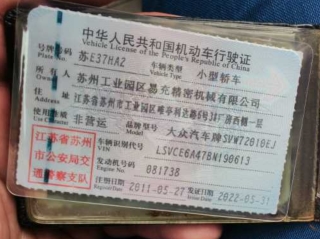 中华人民共和国机动车行驶证
Vehicle License of the People's Republic of China
号牌号码 苏E37HA2 车辆类型 小型轿车
Plate No. Vehicle Type
所有人 苏州工业园区易充精密机械有限公司
Owner
住址 江苏省苏州市工业园区唯亭利达路6号3#厂房西侧一层
Address
使用性质 非营运 品牌型号 大众汽车牌SVW72010EJ
Use Character Model
江苏省苏州
市公安局交
通警察支队
车辆识别代号 LSVCE6A47BN190613
VIN
发动机号码 081738
Engine No.
注册日期 2011-05-27 发证日期 2022-05-31
Register Date Issue Date